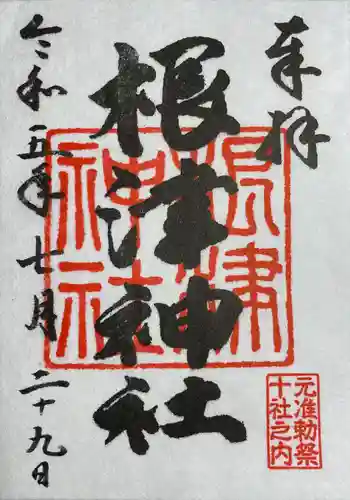 奉拝
根津神社
令和五年七月二十九日
根津神社
元准勅祭
十社之内